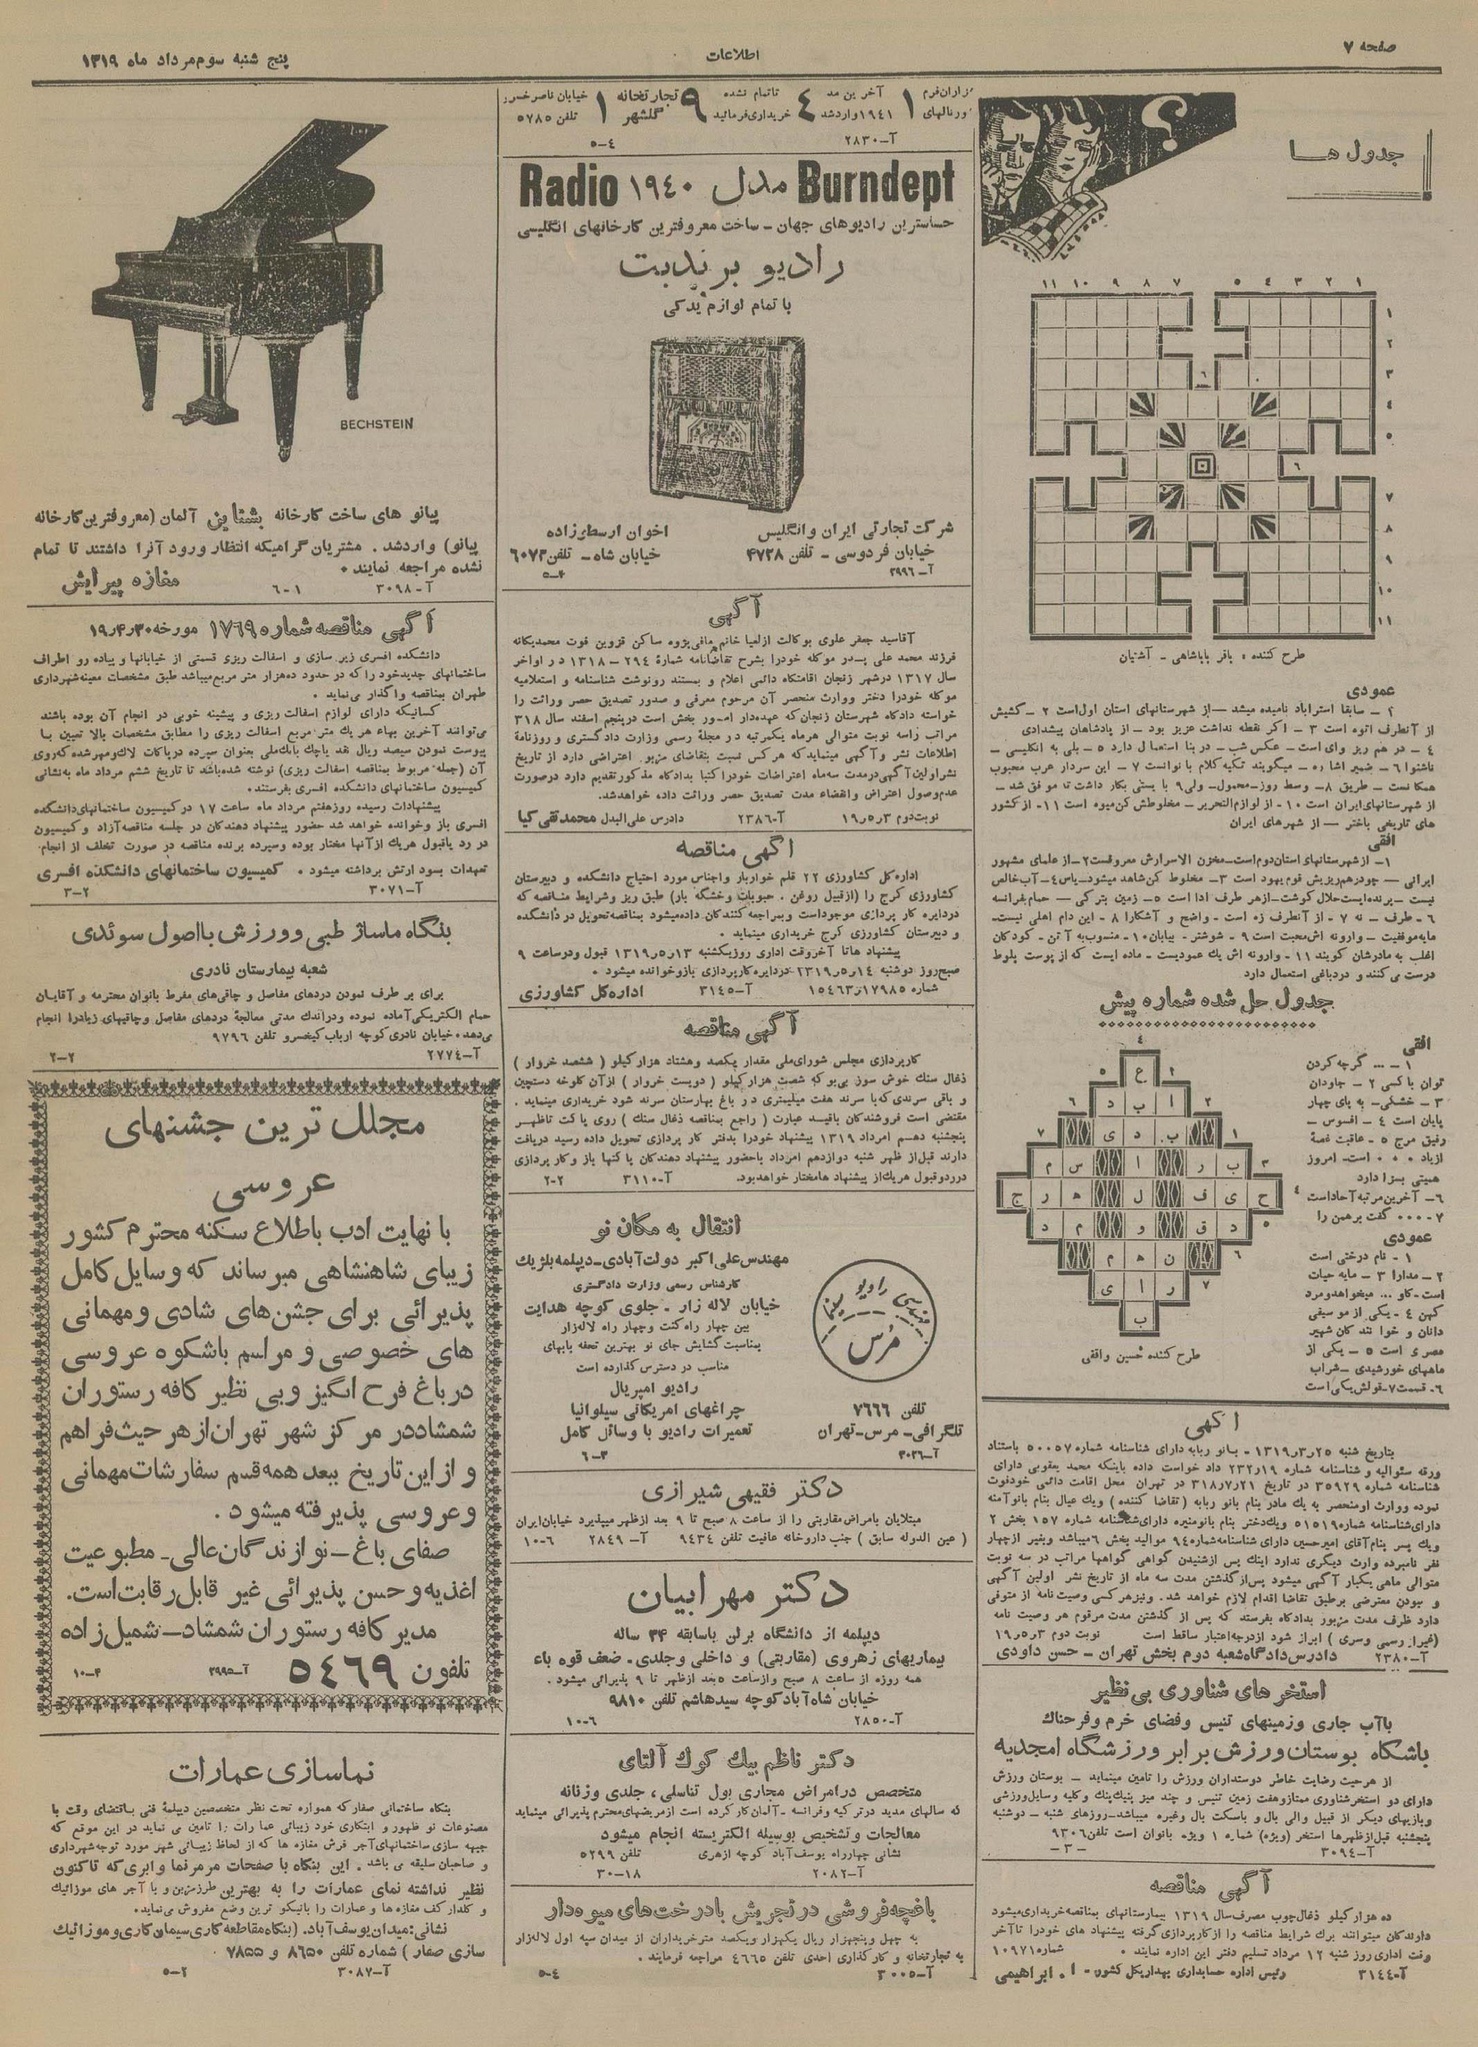 صفحه ۷
اطلاعات
پنج شنبه سوم مرداد ماه ۱۳۱۹
جدول ها
۱ ۲ ۳ ۴ ۵ ۷ ۸ ۹ ۱۰ ۱۱
طرح کننده : باقر باباشاهی - آشتیان
عمودی
۱ - سابقا استراباد نامیده میشد - از شهرستانهای استان اول است ۲ - کشیش
از آنطرف اتوه است ۳ - اگر نقطه نداشت عزیز بود - از پادشاهان پیشدادی
۴ - در هم ریز وای است - عکس شب - در بنا استعمال دارد ۵ - بلی به انگلیسی -
ناشنوا ۶ - ضمیر اشاره - میگویند تکیه کلام بانوانست ۷ - این سردار عرب محبوب
همگانست - طریق ۸ - وسط روز - محمول - ولی ۹ با پستی بکار داشت تا موفق شد -
از شهرستانهای ایران است ۱۰ - از لوازم التحریر - مخلوطش کن میوه است ۱۱ - از کشور
های تاریخی باختر - از شهرهای ایران
افقی
۱ - از شهرستانهای استان دوم است - مخزن الاسرارش معروفست ۲ - از علمای مشهور
ایرانی - چو درهم ریزیش قوم یهود است ۳ - مخلوط کن شاهد میشود - یاس ۴ - آب خالص
نیست - پرنده ایست حلال گوشت - از هر طرف ادا است ۵ - زمین بترکی - حمام بفرانسه
۶ - طرف - نه ۷ - از آنطرف زه است - واضح و آشکارا ۸ - این دام اهلی نیست -
مایه موفقیت - وارونه اش محبت است ۹ - شوشتر - بیابان ۱۰ - منسوب به آتن - کودکان
اغلب به مادرشان گویند ۱۱ - وارونه اش یك عمودیست - ماده ایست که از پوست بلوط
درست می کنند و درد باغی استعمال دارد
جدول حل شده شماره پیش
افقی
۱ - ... گرچه گردن
توان با کسی ۲ - جاودان
۳ - خشکی - به پای چهار
پایان است ۴ - افسوس -
رفیق مرج ۵ - عاقبت غصهٔ
ازیاد ۰ ۰ ۰ است - امروز
همیتی بسزا دارد
۶ - آخرین مرتبه آحاد است
۷ - ۰۰۰ گفت برهمن را
عمودی
۱ - نام درختی است
۲ - مدارا ۳ - مایه حیات
است - گاو ... میخواهد و مرد
کهن ۴ - یکی از موسیقی
دانان و خوانندگان شهیر
مصری است ۵ - یکی از
ماههای خورشیدی - شراب
۶ - قسمت ۷ - قولش یکی است
طرح کننده حسین واقفی
آگهی
بتاریخ شنبه ۲۵ر۳ر۱۳۱۹ - بانو ربابه دارای شناسنامه شماره ۵۰۰۵۷ باستناد
ورقه سئوالیه و شناسنامه شماره ۲۳۲۱۹ داد خواست داده باینکه محمد یعقوبی دارای
شناسنامه شماره ۳۵۹۲۹ در تاریخ ۲۱ر۷ر۳۱۸ در تهران محل اقامت دائمی خود فوت
نموده و وراث او منحصر به یك مادر بنام بانو ربابه (تقاضا کننده) و یك عیال بنام بانو آمنه
دارای شناسنامه شماره ۵۱۵۱۹ و یك دختر بنام بانو منیره دارای شناسنامه شماره ۱۵۷ بخش ۲
و یك پسر بنام آقای امیر حسین دارای شناسنامه شماره ۹۴۰ موالید بخش ۶ میباشد و بغیر از چهار
نفر نامبرده وارث دیگری ندارد اینك پس از شنیدن گواهی گواهها مراتب در سه نوبت
متوالی ماهی یکبار آگهی میشود پس از گذشتن مدت سه ماه از تاریخ نشر اولین آگهی
و نبودن معترضی برطبق تقاضا اقدام لازم خواهد شد . ونیز هر کسی وصیت نامه از متوفی
دارد ظرف مدت مزبور بدادگاه بفرستد که پس از گذشتن مدت مرقوم هر وصیت نامه
(غیر از رسمی و سری) ابراز شود از درجه اعتبار ساقط است نوبت دوم ۳ر۵ر۱۹
آ-۲۳۸۰ دادرس دادگاه شعبه دوم بخش تهران - حسن داودی
استخرهای شناوری بی نظیر
با آب جاری و زمینهای تنیس و فضای خرم و فرحناك
باشگاه بوستان ورزش برابر ورزشگاه امجدیه
از هر حیث رضایت خاطر دوستداران ورزش را تامین مینماید - بوستان ورزش
دارای دو استخر شناوری ممتاز و هفت زمین تنیس و چند میز پنیك پنك و کلیه وسایل ورزشی
و بازیهای دیگر از قبیل والی بال و باسکت بال وغیره میباشد - روزهای شنبه - دوشنبه
پنجشنبه قبل از ظهرها استخر (ویژه) شماره ۱ ویژه بانوان است تلفن ۹۳۰۶
آ-۳۰۹۴ - ۳ -
آگهی مناقصه
ده هزار کیلو ذغال چوب مصرف سال ۱۳۱۹ بیمارستانهای بمناقصه خریداری میشود
دارندگان میتوانند برك شرایط مناقصه را از کارپردازی گرفته پیشنهاد های خود را تا آخر
وقت اداری روز شنبه ۱۲ مرداد تسلیم دفتر این اداره نمایند . شماره ۱۰۹۷۱
آ-۳۱۴۴ رئیس اداره حسابداری بهداری کل کشور - ا . ابراهیمی
آخرین مد ۱۹۴۱ وارد شد
تا تمام نشده خریداری فرمائید
تجارتخانه گلشهر
خیابان ناصر خسرو تلفن ۵۷۸۵
آ-۲۸۳۰ ۴-۵
Radio ۱۹۴۰ مدل Burndept
حساسترین رادیوهای جهان - ساخت معروفترین کارخانهای انگلیسی
رادیو برندبت
با تمام لوازم یدکی
شرکت تجارتی ایران و انگلیس اخوان ارسطو زاده
خیابان فردوسی - تلفن ۴۷۳۸ خیابان شاه - تلفن ۶۰۷۳
آ-۲۹۹۶
آگهی
آقاسید جعفر علوی بوکالت از لعیا خانم مافی پژوه ساکن قزوین فوت محمدیکانه
فرزند محمد علی پدر موکله خود را بشرح تقاضانامه شمارهٔ ۲۹۴ - ۱۳۱۸ در اواخر
سال ۱۳۱۷ در شهر زنجان اقامتگاه دائمی اعلام و بمستند رونوشت شناسنامه و استعلامیه
موکله خود را دختر و وارث منحصر آن مرحوم معرفی و صدور تصدیق حصر وراثت را
خواسته دادگاه شهرستان زنجان که عهده دار امور بخش است در پنجم اسفند سال ۳۱۸
مراتب را سه نوبت متوالی هر ماه یکمرتبه در مجلهٔ رسمی وزارت دادگستری و روزنامهٔ
اطلاعات نشر و آگهی مینماید که هر کس نسبت بتقاضای مزبور اعتراضی دارد از تاریخ
نشر اولین آگهی در مدت سه ماه اعتراضات خود را کتبا بدادگاه مذکور تقدیم دارد در صورت
عدم وصول اعتراض و انقضاء مدت تصدیق حصر وراثت داده خواهد شد.
نوبت دوم ۳ر۵ر۱۹ آ-۲۳۸۶ دادرس علی البدل محمد تقی کیا
آگهی مناقصه
اداره کل کشاورزی ۲۲ قلم خواربار و اجناس مورد احتیاج دانشکده و دبیرستان
کشاورزی کرج را (از قبیل روغن . حبوبات و خشگه بار) طبق ریز و شرایط مناقصه که
در دایره کار پردازی موجود است و بمراجعه کنندگان داده میشود بمناقصه تحویل در دانشکده
و دبیرستان کشاورزی کرج خریداری مینماید .
پیشنهاد هاتا آخر وقت اداری روز یکشنبه ۱۳ر۵ر۱۳۱۹ قبول و در ساعت ۹
صبح روز دوشنبه ۱۴ر۵ر۱۳۱۹ در دایره کارپردازی باز و خوانده میشود .
شماره ۱۷۹۸۵ر۱۵۴۶۳ آ-۳۱۴۵ اداره کل کشاورزی
آگهی مناقصه
کارپردازی مجلس شورای ملی مقدار یکصد و هشتاد هزار کیلو ( ششصد خروار )
ذغال سنك خوش سوز بی بو که شصت هزار کیلو ( دویست خروار ) از آن کلوخه دستچین
و باقی سرندی که با سرند هفت میلیمتری در باغ بهارستان سرند شود خریداری مینماید .
مقتضی است فروشندگان باقید عبارت ( راجع بمناقصه ذغال سنك ) روی پاکت تا ظهر
پنجشنبه دهم امرداد ۱۳۱۹ پیشنهاد خود را بدفتر کار پردازی تحویل داده رسید دریافت
دارند قبل از ظهر شنبه دوازدهم امرداد با حضور پیشنهاد دهندگان پاکتها باز و کار پردازی
در رد و قبول هر یك از پیشنهاد ها مختار خواهد بود. آ-۳۱۱۰ ۲-۲
انتقال به مکان نو
مهندس علی اکبر دولت آبادی - دیپلمه بلژیك
کارشناس رسمی وزارت دادگستری
خیابان لاله زار - جلوی کوچه هدایت
بین چهار راه کنت و چهار راه لاله زار
بمناسبت گشایش جای نو بهترین تحفه بابهای
مناسب در دسترس گذارده است
رادیو امپریال
چراغهای امریکائی سیلوانیا
تعمیرات رادیو با وسائل کامل
مهندسی رادیو سینما
مرس
تلفن ۷۶۶۶
تلگرافی - مرس - تهران
آ-۳۰۲۶ ۳-۶
دکتر فقیهی شیرازی
مبتلایان بامراض مقاربتی را از ساعت ۸ صبح تا ۹ بعد از ظهر میپذیرد خیابان ایران
( عین الدوله سابق ) جنب داروخانه عافیت تلفن ۹۴۳۴ آ-۲۸۴۹ ۶-۱۰
دکتر مهرابیان
دیپلمه از دانشگاه برلن با سابقه ۳۴ ساله
بیماریهای زهروی (مقاربتی) و داخلی و جلدی - ضعف قوه باء
همه روزه از ساعت ۸ صبح و از ساعت ۵ بعد از ظهر تا ۹ پذیرائی میشود .
خیابان شاه آباد کوچه سید هاشم تلفن ۹۸۱۰
آ-۲۸۵۰ ۶-۱۰
دکتر ناظم بیك گوك آلتای
متخصص در امراض مجاری بول تناسلی ، جلدی و زنانه
که سالهای مدید در ترکیه و فرانسه - آلمان کار کرده است از مریضهای محترم پذیرائی مینماید
معالجات و تشخیص بوسیله الکتریسته انجام میشود
نشانی چهارراه یوسف آباد کوچه ازهری تلفن ۵۲۹۹
آ-۲۰۸۲ ۱۸-۳۰
باغچه فروشی در تجریش با درخت های میوه دار
به چهل و پنجهزار ریال یکهزار و یکصد متر خریداران از میدان سپه اول لاله زار
به تجارتخانه و کارگذاری احدی تلفن ۴۶۶۵ مراجعه فرمایند .
آ-۳۰۰۵ ۴-۵
BECHSTEIN
پیانو های ساخت کارخانه بشتاین آلمان (معروفترین کارخانه
پیانو) وارد شد . مشتریان گرامیکه انتظار ورود آنرا داشتند تا تمام
نشده مراجعه نمایند . مغازه پیرایش
آ-۳۰۹۸ ۱-۶
آگهی مناقصه شماره ۱۷۶۹ مورخه ۳۰ر۴ر۱۹
دانشکده افسری زیر سازی و اسفالت ریزی قسمتی از خیابانها و پیاده رو اطراف
ساختمانهای جدید خود را که در حدود ده هزار متر مربع میباشد طبق مشخصات معینه شهرداری
طهران بمناقصه واگذار می نماید .
کسانیکه دارای لوازم اسفالت ریزی و پیشینه خوبی در انجام آن بوده باشند
می توانند آخرین بهاء هر یك متر مربع اسفالت ریزی را مطابق مشخصات بالا تعیین با
پیوست نمودن سیصد ریال نقد یا چك بانك ملی بعنوان سپرده در پاکات لاك و مهر شده که روی
آن (جمله مربوط بمناقصه اسفالت ریزی) نوشته شده باشد تا تاریخ ششم مرداد ماه به نشانی
کمیسیون ساختمانهای دانشکده افسری بفرستند.
پیشنهادات رسیده روز هفتم مرداد ماه ساعت ۱۷ در کمیسیون ساختمانهای دانشکده
افسری باز و خوانده خواهد شد حضور پیشنهاد دهندگان در جلسه مناقصه آزاد و کمیسیون
در رد یا قبول هر یك از آنها مختار بوده و سپرده برنده مناقصه در صورت تخلف از انجام
تعهدات بسود ارتش برداشته میشود . کمیسیون ساختمانهای دانشکده افسری
آ-۳۰۷۱ ۲-۳
بنگاه ماساژ طبی و ورزش با اصول سوئدی
شعبه بیمارستان نادری
برای بر طرف نمودن دردهای مفاصل و چاقی های مفرط بانوان محترمه و آقایان
حمام الکتریکی آماده نموده و در اندك مدتی معالجهٔ دردهای مفاصل و چاقیهای زیاد را انجام
می دهد . خیابان نادری کوچه ارباب کیخسرو تلفن ۹۷۹۶
آ-۲۷۷۴ ۲-۲
مجلل ترین جشنهای
عروسی
با نهایت ادب باطلاع سکنه محترم کشور
زیبای شاهنشاهی میرساند که وسایل کامل
پذیرائی برای جشن های شادی و مهمانی
های خصوصی و مراسم باشکوه عروسی
در باغ فرح انگیز و بی نظیر کافه رستوران
شمشاد در مرکز شهر تهران از هر حیث فراهم
و از این تاریخ ببعد همه قسم سفارشات مهمانی
و عروسی پذیرفته میشود .
صفای باغ - نوازندگان عالی - مطبوعیت
اغذیه و حسن پذیرائی غیر قابل رقابت است.
مدیر کافه رستوران شمشاد - شمیل زاده
تلفون ۵۴۶۹ آ-۲۹۹۵ ۴-۱۰
نماسازی عمارات
بنگاه ساختمانی صفار که همواره تحت نظر متخصصین دیپلمهٔ فنی باقتضای وقت با
مصنوعات نو ظهور و ابتکاری خود زیبائی عمارات را تامین می نماید در این موقع که
جبهه سازی ساختمانهای آجر فرش مغازه ها که از لحاظ زیبائی شهر مورد توجه شهرداری
و صاحبان سلیقه می باشد . این بنگاه با صفحات مرمر نما و ابری که تاکنون
نظیر نداشته نمای عمارات را به بهترین طرز مزین و با آجر های موزائیك
و گلدار کف مغازه ها و عمارات را بانیکو ترین وضع مفروش می نماید .
نشانی : میدان یوسف آباد. (بنگاه مقاطعه کاری سیمان کاری و موزائیك
سازی صفار) شماره تلفن ۸۶۵۰ و ۷۸۵۵
آ-۳۰۸۷ ۲-۵